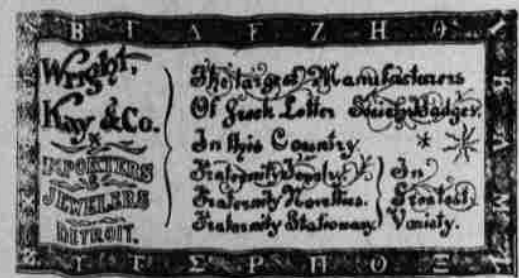 B Γ Δ E Z H Θ I
Wright,
Kay & Co.
IMPORTERS
&
JEWELERS
DETROIT.
The Largest Manufacturers
Of Greek Letter Society Badges.
In this Country.
Fraternity Jewelry.
Fraternity Novelties.
Fraternity Stationary.
In
Greatest
Variety.
T Σ P Π O Ξ